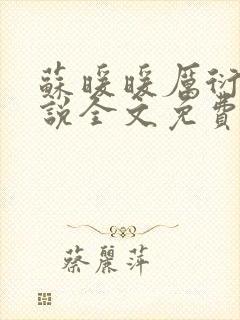 蘇暖暖厲衍
說全文免費
蔡麗萍